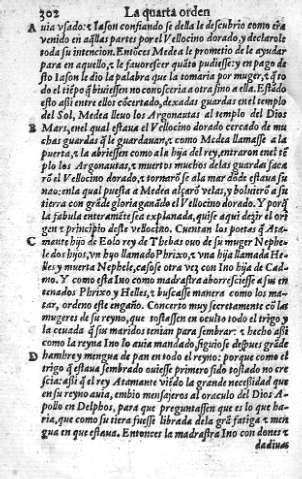 302 La quarta orden
A uia vsado: τ Iason confiando se della le descubrio como era
venido en aq̃llas partes por el Vellocino dorado, y declarole
toda su intencion. Entõces Medea le prometio de le ayudar
para en aquello, τ le fauorescer quãto pudiesse: y en pago de
sto Iason le dio la palabra que la tomaria por muger, τ q̃ to
do el tiẽpo q̃ biuiessen no conosceria a otra sino a ella. Estãdo
esto assi entre ellos cõcertado, dexadas guardas en el templo
del Sol, Medea lleuo los Argonautas al templo del Dios
B Mars, en el qual estaua el Vellocino dorado cercado de mu
chas guardas q̃ le guardauan, τ como Medea llamasse a la
puerta, τ la abriessen como a la hija del rey, entraron en el tẽ
plo los Argonautas, τ muertos muchos de las guardas saca
rõ el Vellocino dorado, τ tornarõ se a la mar dõde estaua su
nao: en la qual puesta a Medea alçarõ velas, y boluierõ a su
tierra con grãde gloria ganãdo el Vellocino dorado. Y porq̃
la fabula enteramẽte sea explanada, quise aqui dezir el ori
gen τ principio deste vellocino. Cuentan los poetas q̃ Ata-
C mante hijo de Eolo rey de Thebas ouo de su muger Nephe-
le dos hijos, vn hijo llamado Phrixo, τ vna hija llamada He-
lles y muerta Nephele, casose otra vez con Ino hija de Cad-
mo. Y como esta Ino como madrastra aborresciesse a sus en
tenados Phrixo y Helles, τ buscasse manera como los ma-
tar, ordeno este engaño. Concerto muy secretamente cõ las
mugeres de su reyno, que tostassen en oculto todo el trigo y
la ceuada q̃ sus maridos tenian para sembrar: τ hecho assi
como la reyna Ino lo auia mandado, siguiose despues grãde
D hambre y mengua de pan en todo el reyno: porque como el
trigo q̃ estaua sembrado ouiesse primero sido tostado no cre
scia: assi q̃ el rey Atamante viẽdo la grande necessidad que
en su reyno auia, embio mensajeros al oraculo del Dios A-
pollo en Delphos, para que preguntassen que es lo que ha-
ria, que como su tierra fuesse librada de la grã fatiga τ men
gua en que estaua. Entonces la madrastra Ino con dones τ
dadiuas